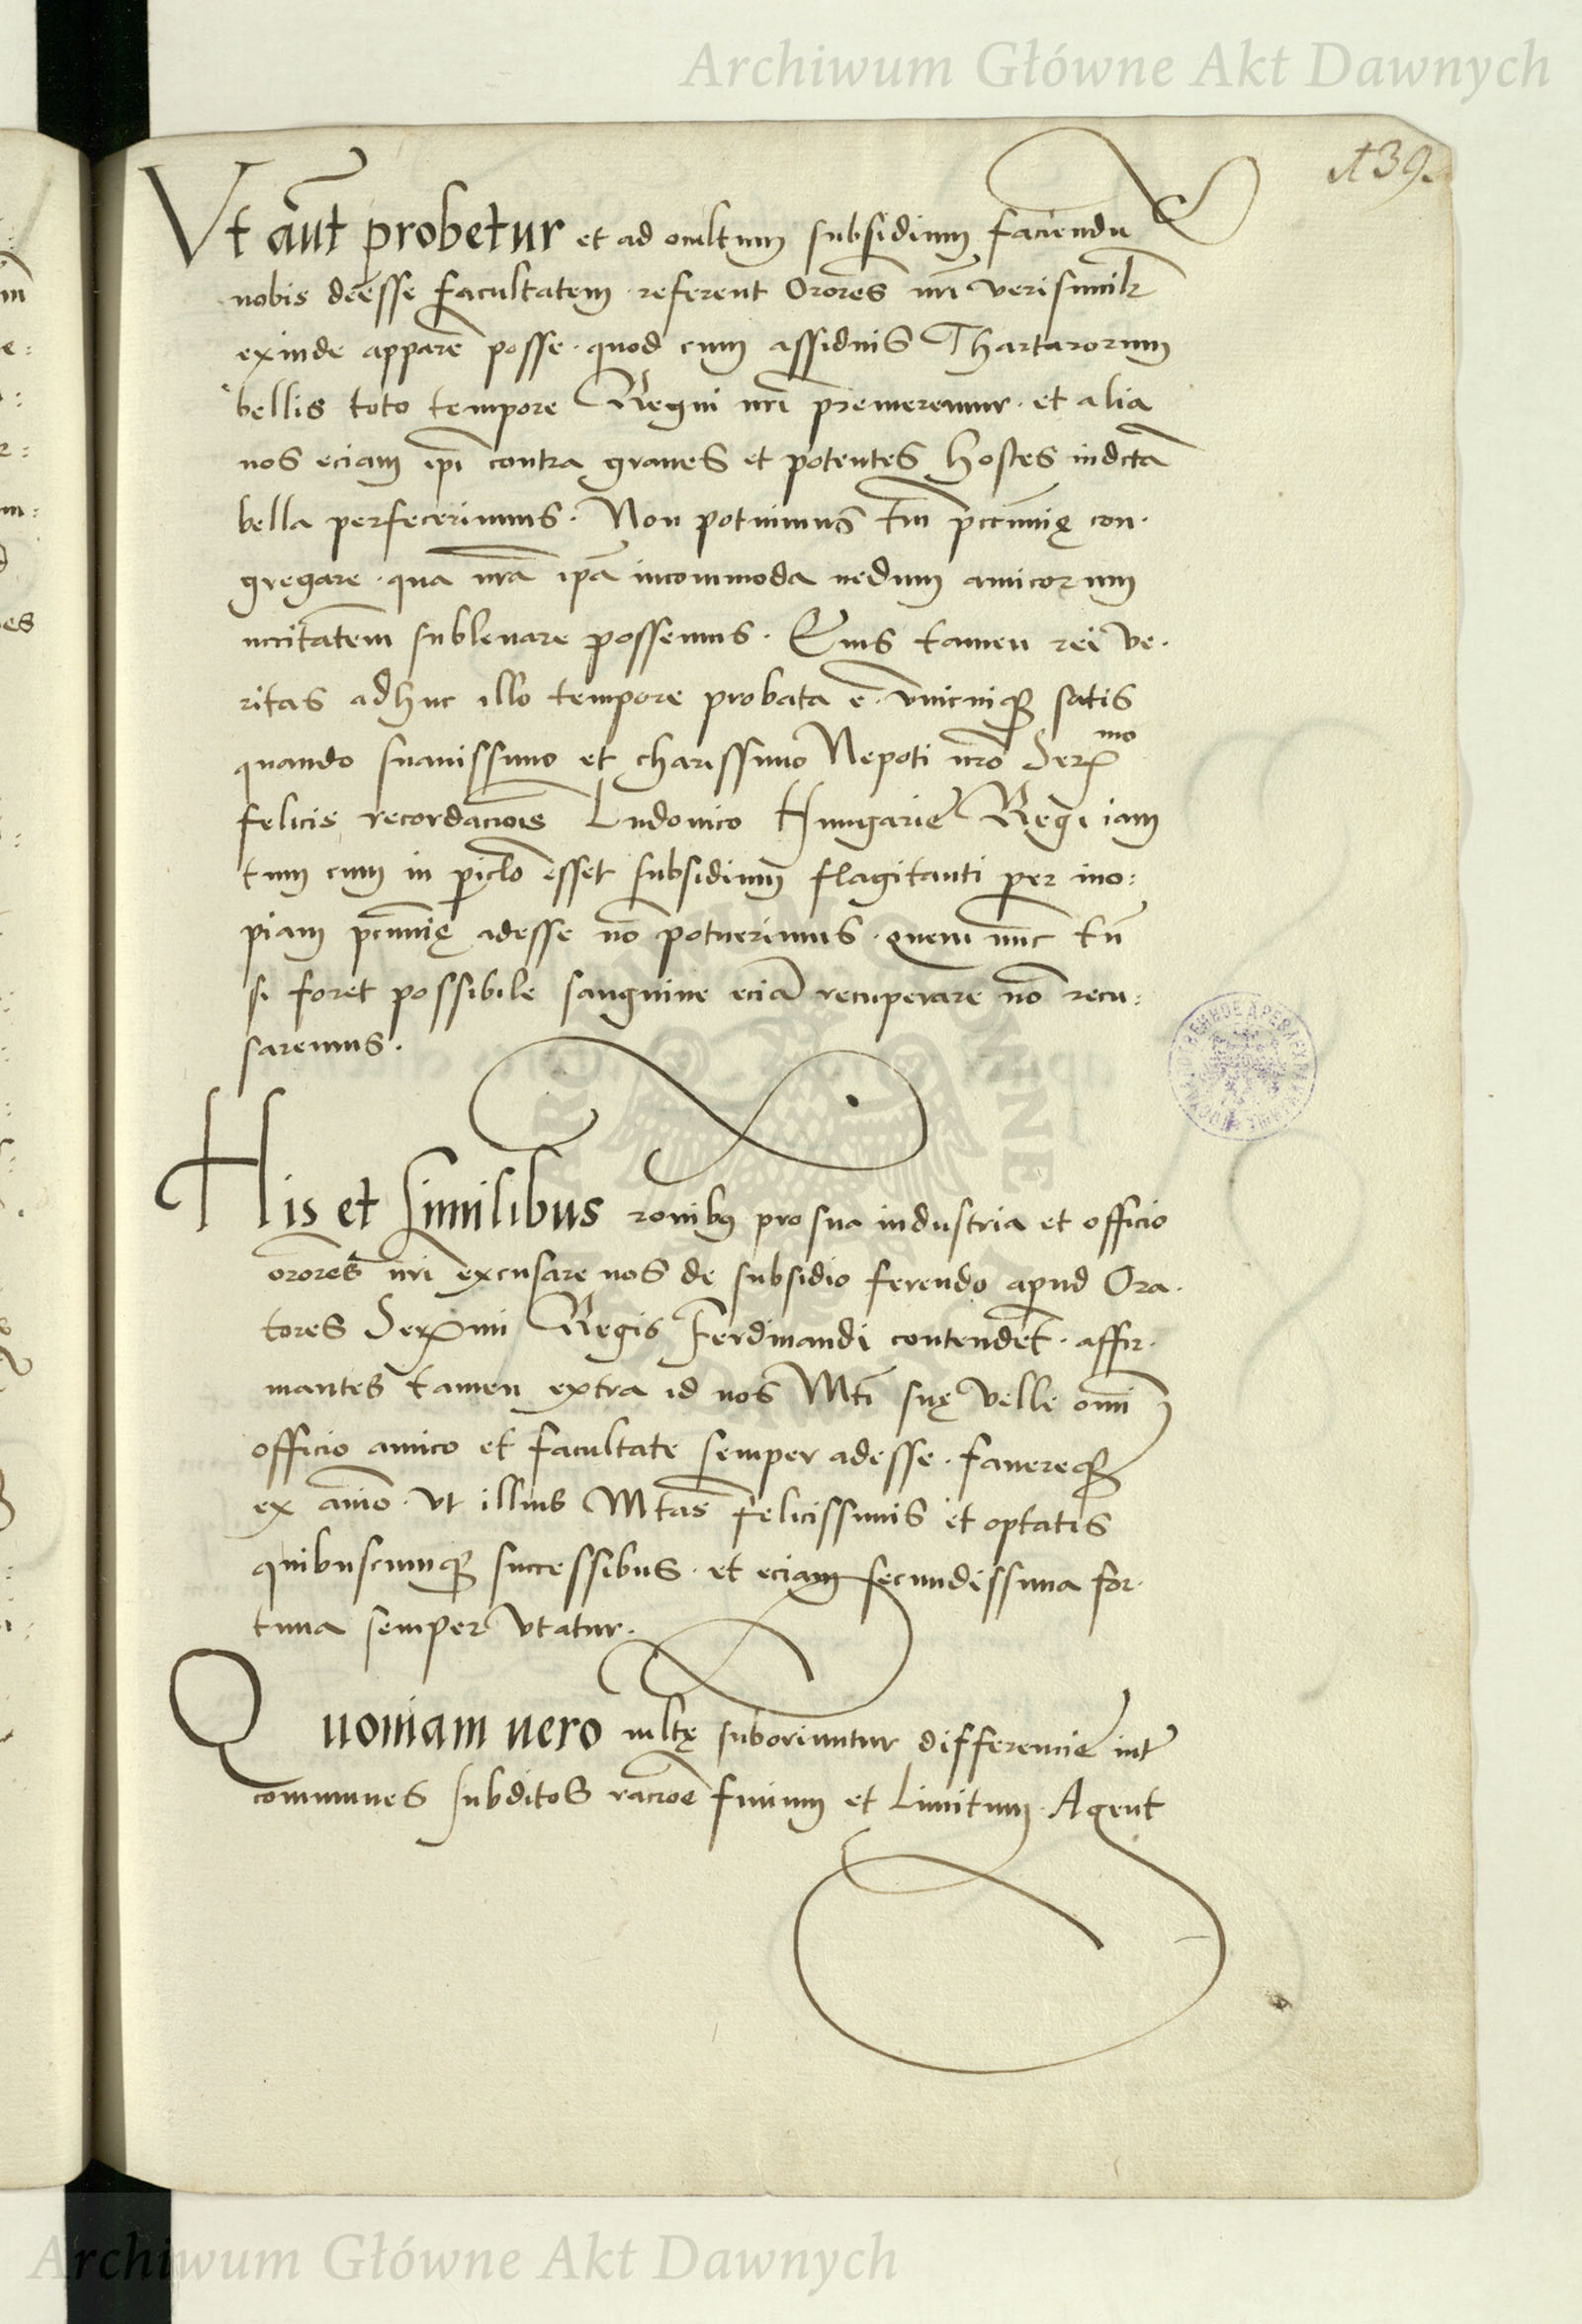 Archiwum Główne Akt Dawnych
139.
Vt aut̄ probetur et ad ocultum subsidium faciendu
nobis deesse facultatem referent Orores nri verisimilr
exinde appare posse. quod cum assiduis Thartarorum
bellis toto tempore Regni nri premeremur. et alia
nos eciam ipi contra graues et potentes hostes indcta
bella perfecerimus. Non potuimus tm pecunię con.
gregare. qua nra ipa incommoda nedum amicorum
nccitatem subleuare possemus. Eius tamen rei ve.
ritas adhuc illo tempore probata ē. vnicuiqȝ satis
quando suauissimo et charissimo Nepoti nro Sermo
felicis recordaciois Ludouico Hungarie Regi iam
tum cum in piclo esset subsidium flagitanti per ino:
piam pecunię adesse no potuerimus. quem nunc tn
si foret possibile sanguine ecia recuperare no recu:
saremus.
His et similibus ronibȝ pro sua industria et officio
orores nri excusare nos de subsidio ferendo apud Ora.
tores Sermi Regis Ferdinandi contendet. affir.
mantes tamen extra id nos Mti suę velle omni
officio amico et facultate semper adesse. fauereqȝ
ex aimo. vt illius Mtas felicissimis et optatis
quibuscumqȝ successibus. et eciam fecundissima for.
tuna semper vtatur.
Quoniam uero mltę suboriuntur differencie int
communes subditos racioe finium et Limitum. Agent
Archiwum Główne Akt Dawnych